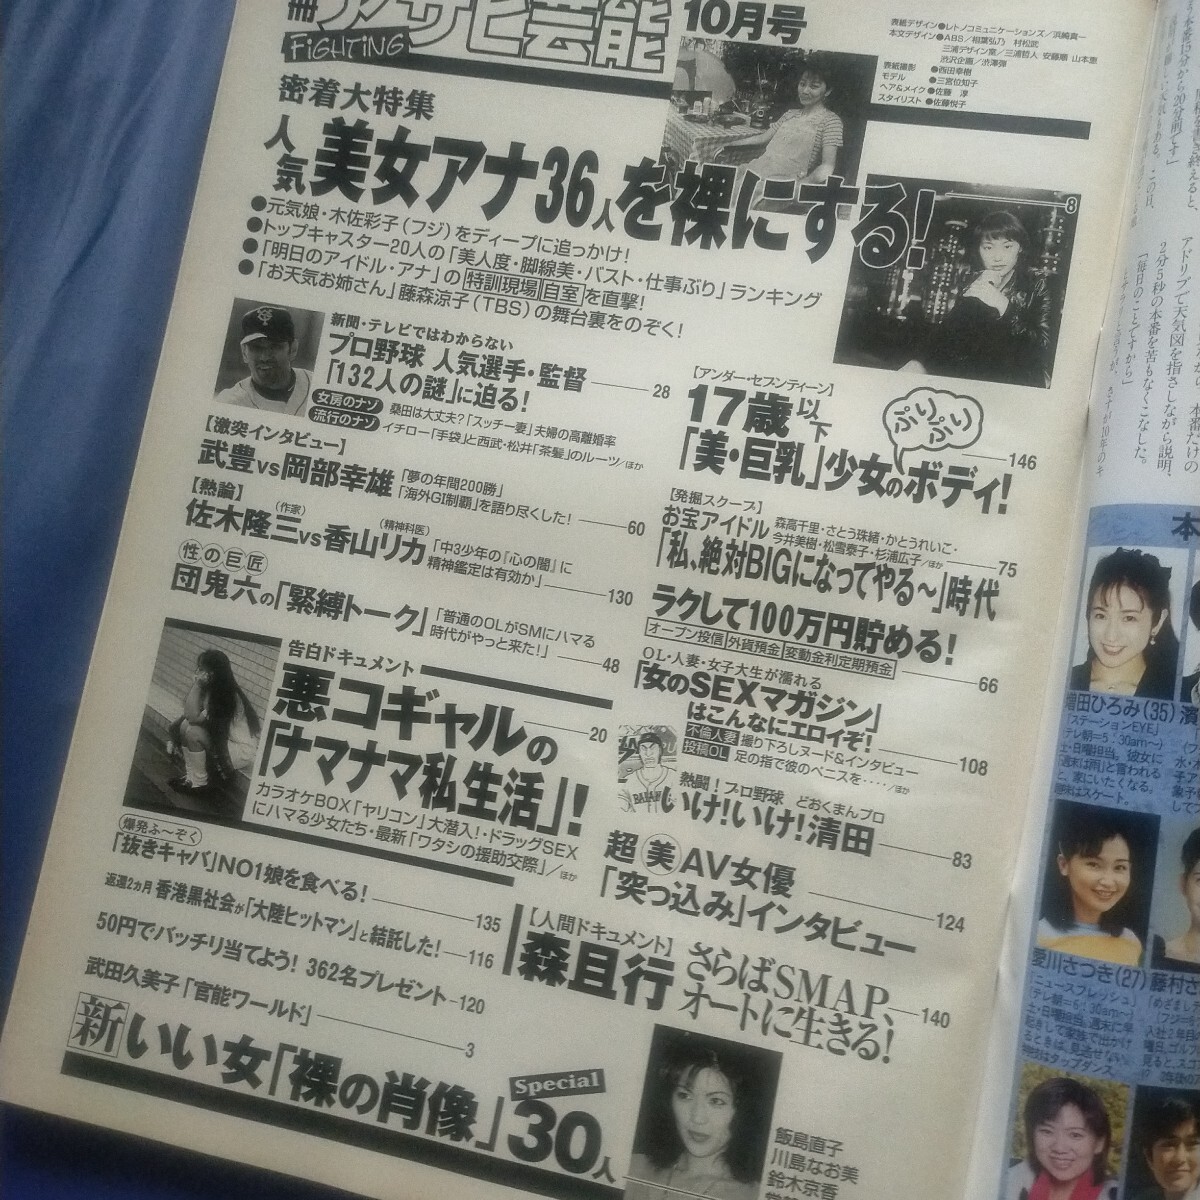 冊アサヒ芸能
FIGHTING
10月号
表紙デザイン●レトノコミュニケーションズ/浜崎真一
本文デザイン●ABS/相葉弘乃 村松武
三浦デザイン室/三浦哲人 安藤順 山本恵
渋沢企画/渋澤弾
表紙撮影●西田幸樹
モデル●三宮位知子
ヘア&メイク●佐藤淳
スタイリスト●佐藤悦子
密着大特集
人気美女アナ36人を裸にする! 8
●元気娘・木佐彩子(フジ)をディープに追っかけ!
●トップキャスター20人の「美人度・脚線美・バスト・仕事ぶり」ランキング
●「明日のアイドル・アナ」の特訓現場 自室を直撃!
●「お天気お姉さん」藤森涼子(TBS)の舞台裏をのぞく!
新聞・テレビではわからない
プロ野球 人気選手・監督
「132人の謎」に迫る! 28
女房のナゾ 桑田は大丈夫?「スッチー妻」夫婦の高離婚率
流行のナゾ イチロー「手袋」と西武・松井「茶髪」のルーツ/ほか
【激突インタビュー】
武豊vs岡部幸雄
「夢の年間200勝」
「海外GI制覇」を語り尽くした! 60
【熱論】
佐木隆三(作家)vs香山リカ(精神科医)
「中3少年の『心の闇』に
精神鑑定は有効か」 130
性の巨匠
団鬼六の「緊縛トーク」
「普通のOLがSMにハマる
時代がやっと来た!」 48
爆発ふ〜ぞく
「抜きキャバ」NO1娘を食べる! 135
返還2ヵ月 香港黒社会が「大陸ヒットマン」と結託した! 116
50円でバッチリ当てよう! 362名プレゼント 120
武田久美子「官能ワールド」 3
新 いい女「裸の肖像」Special 30人
飯島直子
川島なお美
鈴木京香
【発掘スクープ】
お宝アイドル
森高千里・さとう珠緒・かとうれいこ・
今井美樹・松雪泰子・杉浦広子/ほか
「私、絶対BIGになってやる〜」時代 75
ラクして100万円貯める!
オープン投信 外貨預金 変動金利定期預金 66
OL・人妻・女子大生が濡れる
「女のSEXマガジン」
はこんなにエロイぞ! 108
不倫人妻 撮り下ろしヌード&インタビュー
投稿OL 足の指で彼のペニスを‥‥/ほか
熱闘!プロ野球 どおくまんプロ
いけ!いけ!清田 83
超美AV女優
「突っ込み」インタビュー 124
【人間ドキュメント】
森且行
さらばSMAP、
オートに生きる! 140
増田ひろみ(35)
「ステーションEYE」
愛川さつき(27)
「ニュースフレッシュ」